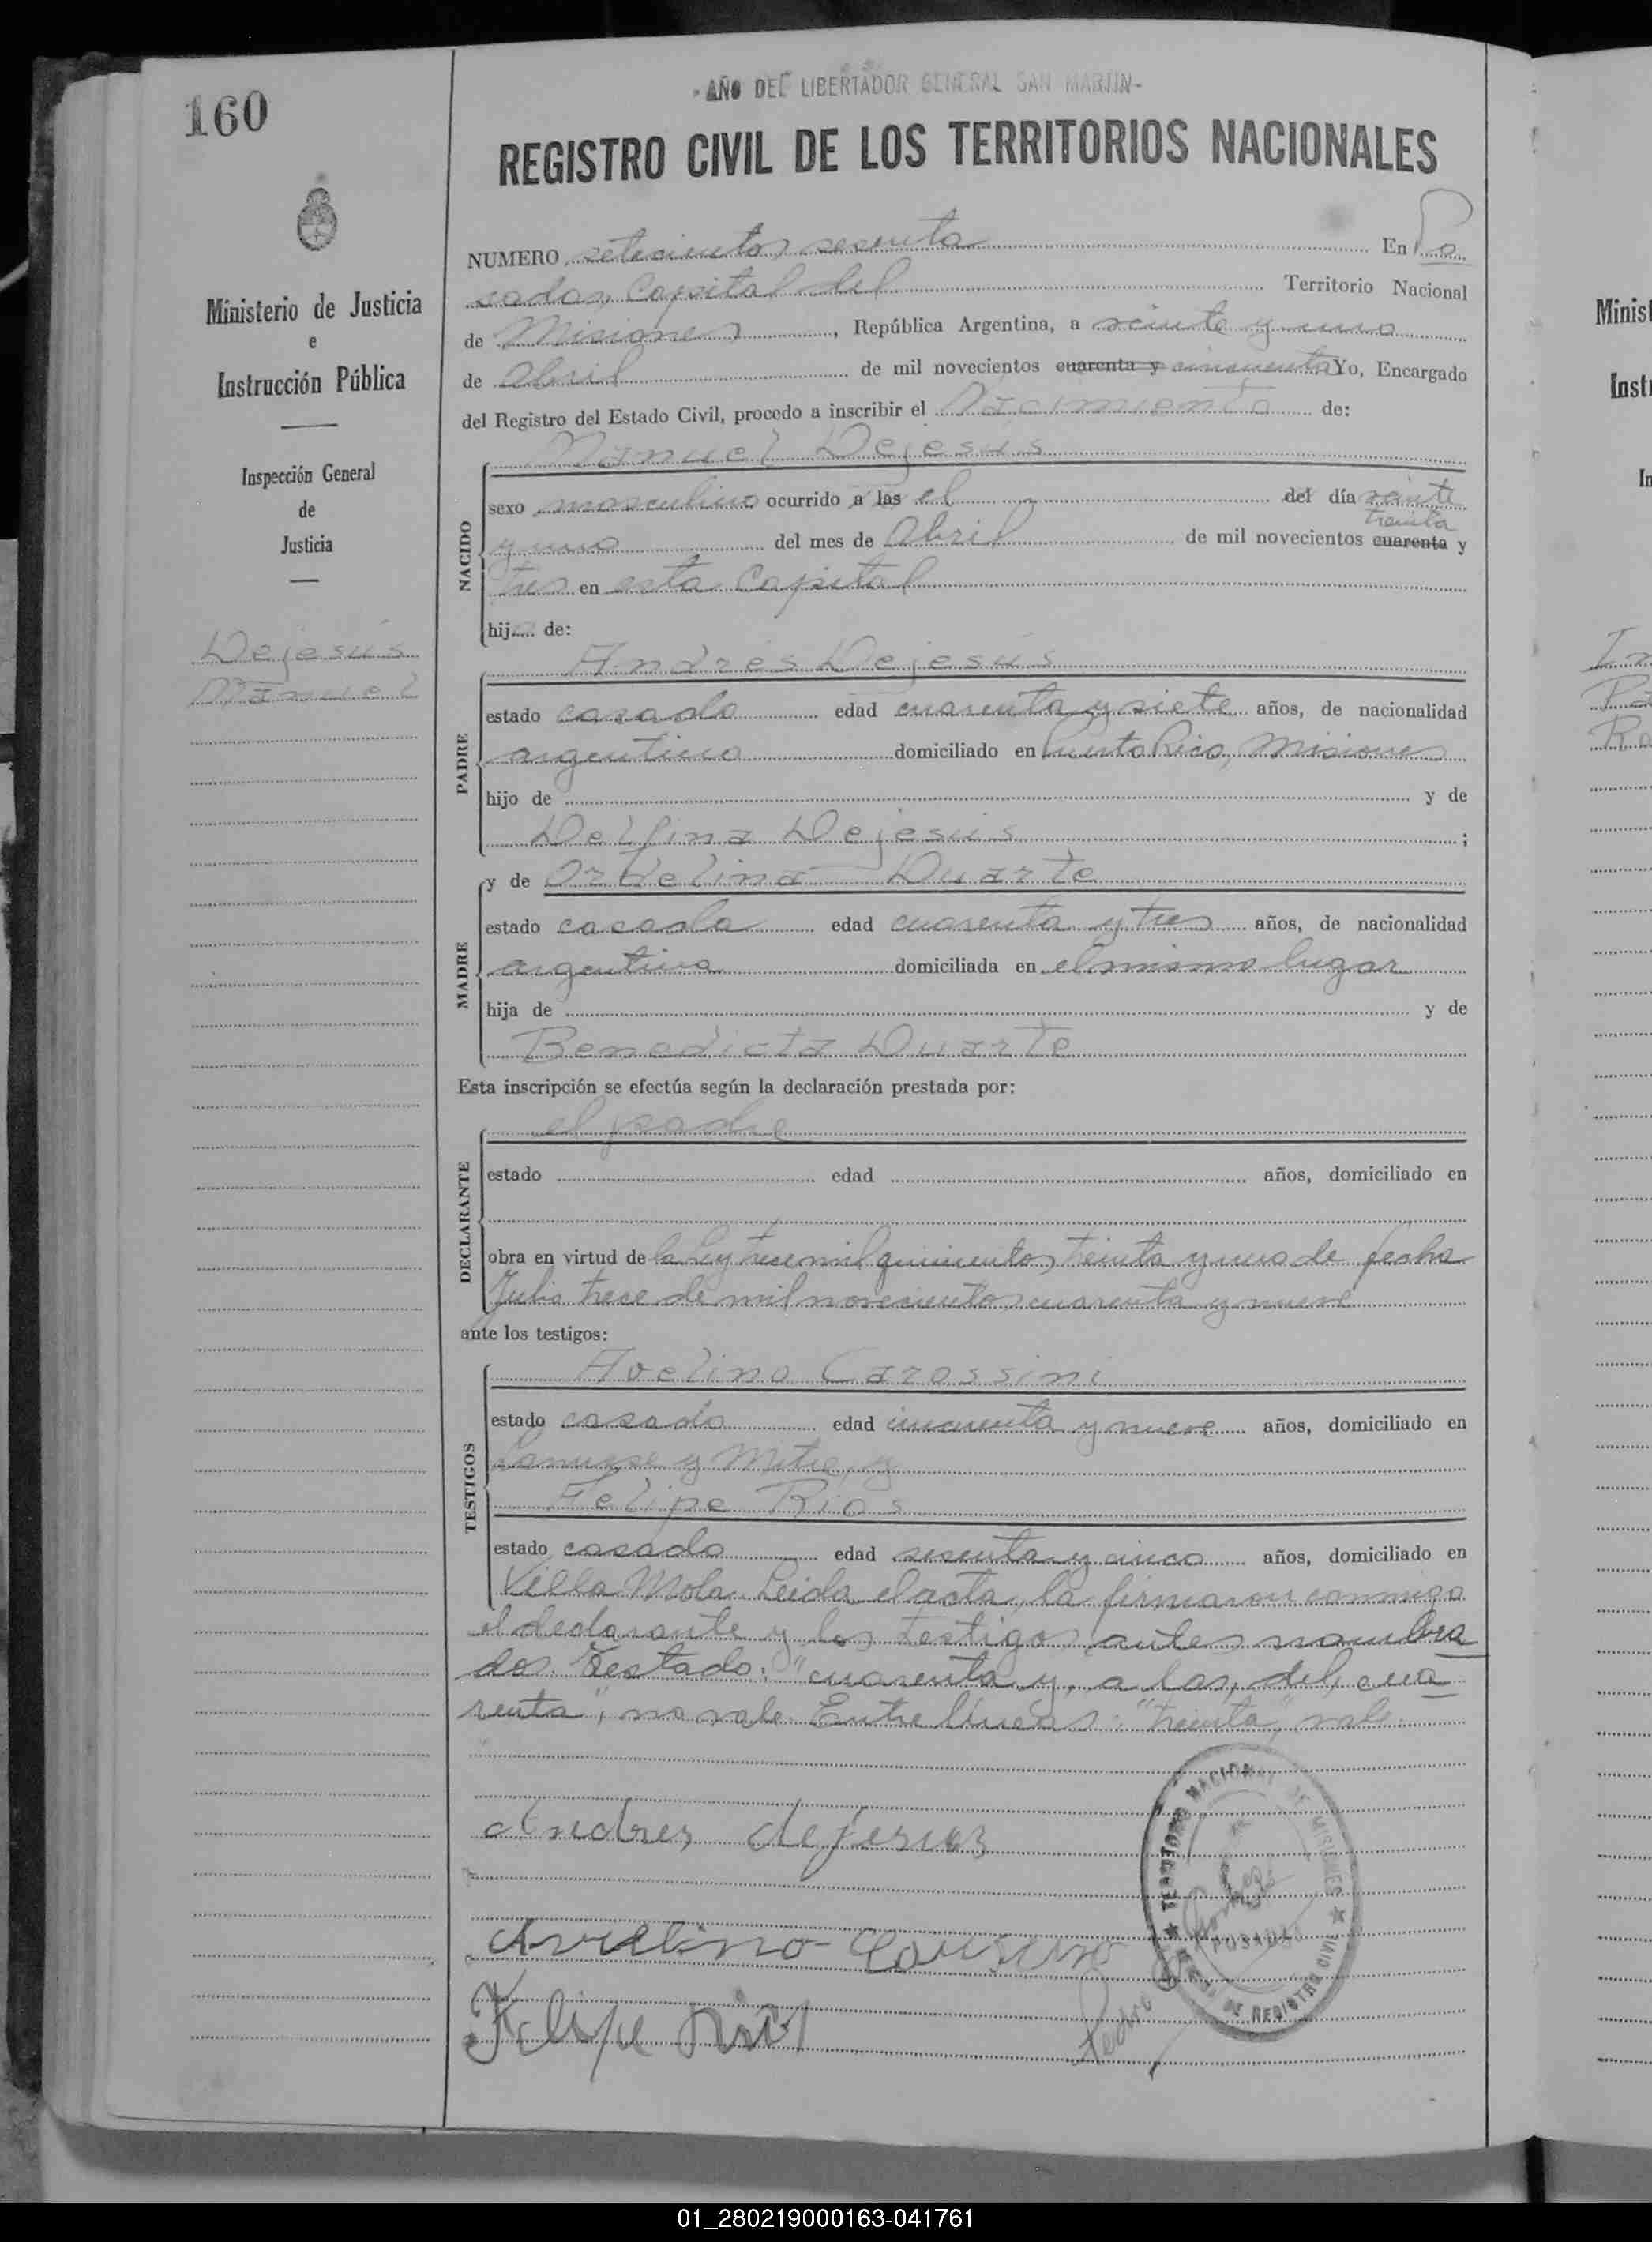 160
- AÑO DEL LIBERTADOR GENERAL SAN MARTIN -
REGISTRO CIVIL DE LOS TERRITORIOS NACIONALES
Ministerio de Justicia
e
Instrucción Pública
Inspección General
de
Justicia
Dejesús
Manuel
NUMERO setecientos sesenta En Po
sadas, Capital del Territorio Nacional
de Misiones, República Argentina, a veinte y uno
de Abril de mil novecientos cuarenta y cincuenta Yo, Encargado
del Registro del Estado Civil, procedo a inscribir el Nacimiento de:
Manuel Dejesús
NACIDO
sexo masculino ocurrido a las el del día veinte
treinta
y uno del mes de Abril de mil novecientos cuarenta y
tres en esta Capital
hijo de:
Andrés Dejesús
PADRE
estado casado edad cuarenta y siete años, de nacionalidad
argentino domiciliado en Puerto Rico, Misiones
hijo de y de
Delfina Dejesús ;
y de Ordelina Duarte
MADRE
estado casada edad cuarenta y tres años, de nacionalidad
argentina domiciliada en el mismo lugar
hija de y de
Benedicta Duarte
Esta inscripción se efectúa según la declaración prestada por:
el padre
DECLARANTE
estado edad años, domiciliado en
obra en virtud de la Ley trece mil quinientos treinta y uno de fecha
Julio trece de mil novecientos cuarenta y nueve
ante los testigos:
Avelino Carossini
TESTIGOS
estado casado edad cincuenta y nueve años, domiciliado en
Lanusse y Mitre, y
Felipe Rios
estado casado edad sesenta y cinco años, domiciliado en
Villa Mola. Leida el acta, la firmaron conmigo
el declarante y los testigos antes nombra
dos. Testado: "cuarenta y, a las, del, cua
renta", no vale. Entre líneas: "treinta", vale.
Andres dejesus
Avelino
Felipe Rios
Pedro
TERRITORIO NACIONAL DE MISIONES
POSADAS
DE REGISTRO CIVIL
Minist
Inst
In
01_280219000163-041761